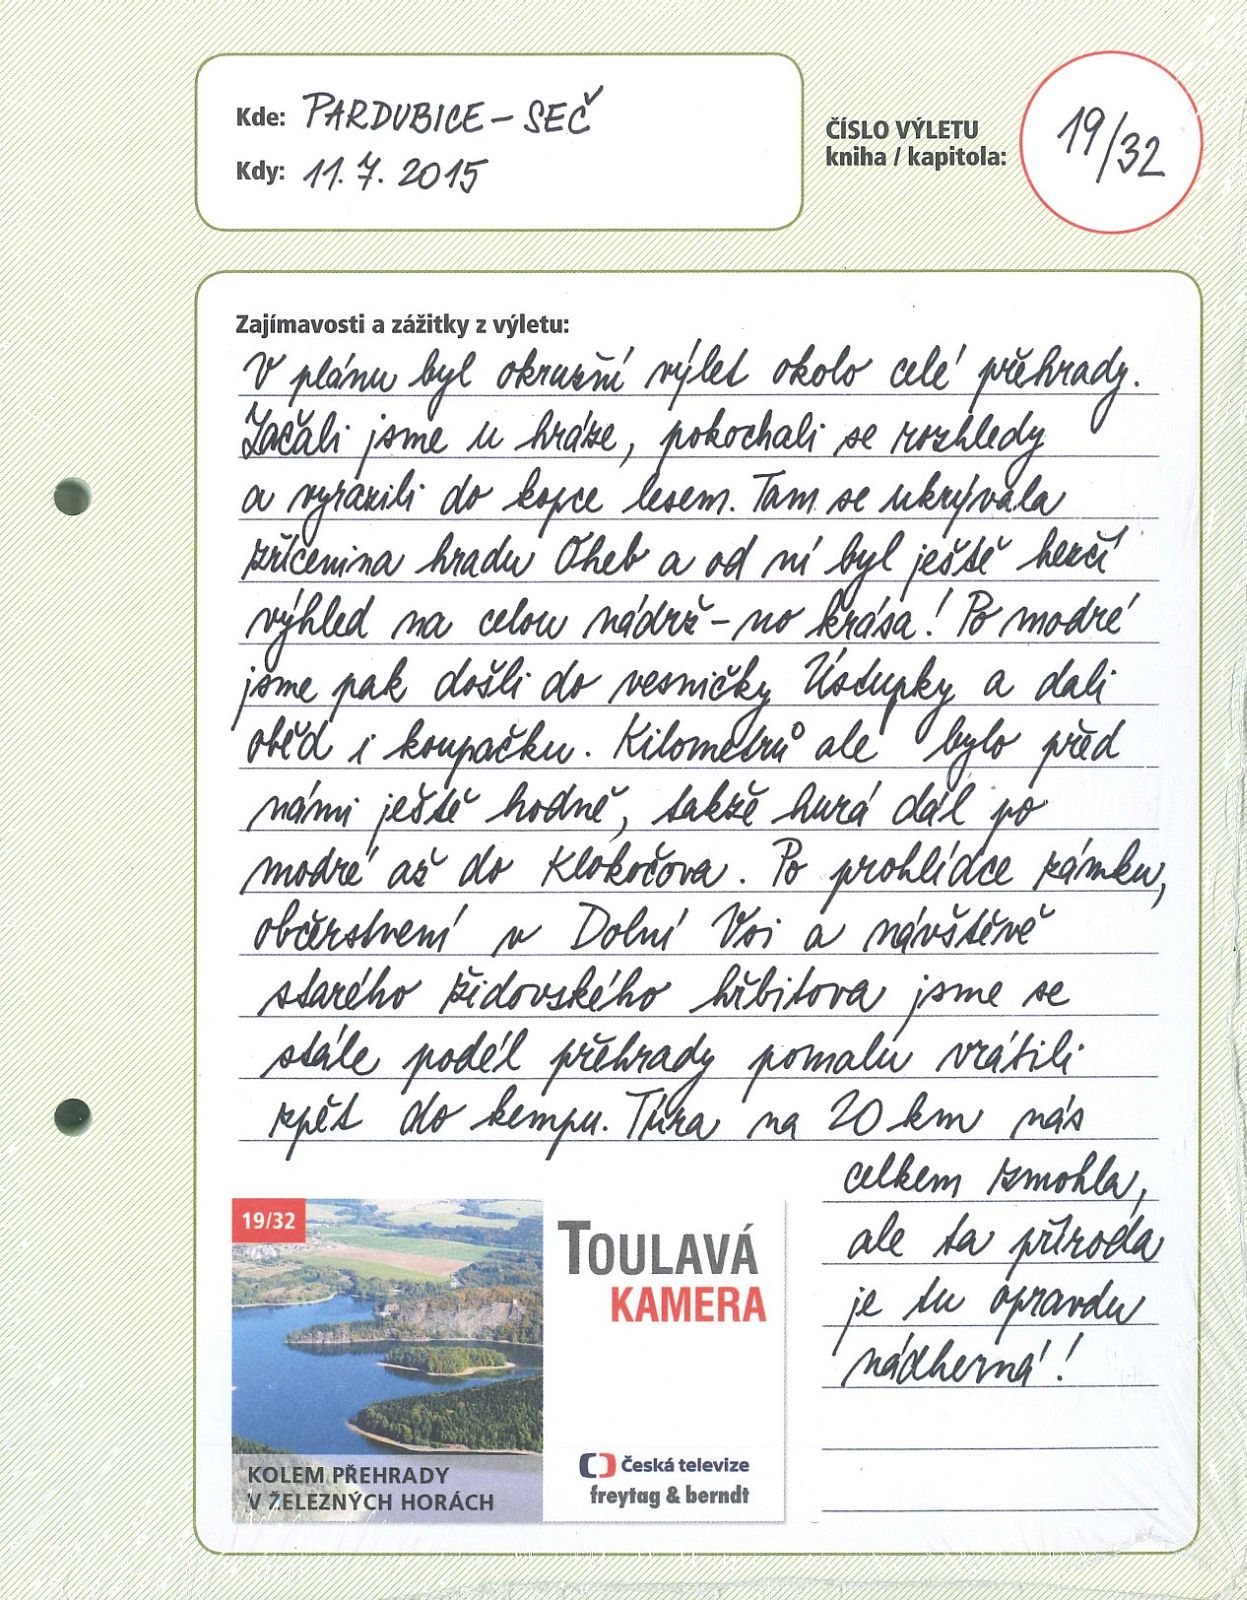 Kde: PARDUBICE – SEČ
Kdy: 11. 7. 2015
ČÍSLO VÝLETU
kniha / kapitola:
19/32
Zajímavosti a zážitky z výletu:
V plánu byl okružní výlet okolo celé přehrady.
Začali jsme u hráze, pokochali se rozhledy
a vyrazili do kopce lesem. Tam se ukrývala
zřícenina hradu Oheb a od ní byl ještě hezčí
výhled na celou nádrž – no krása! Po modré
jsme pak došli do vesničky Ústupky a dali
oběd i koupačku. Kilometrů ale bylo před
námi ještě hodně, takže hurá dál po
modré až do Klokočova. Po prohlídce zámku,
občerstvení v Dolní Vsi a návštěvě
starého židovského hřbitova jsme se
stále podél přehrady pomalu vrátili
zpět do kempu. Túra na 20 km nás
celkem zmohla,
ale ta příroda
je tu opravdu
nádherná!
19/32
TOULAVÁ
KAMERA
KOLEM PŘEHRADY
V ŽELEZNÝCH HORÁCH
Česká televize
freytag & berndt